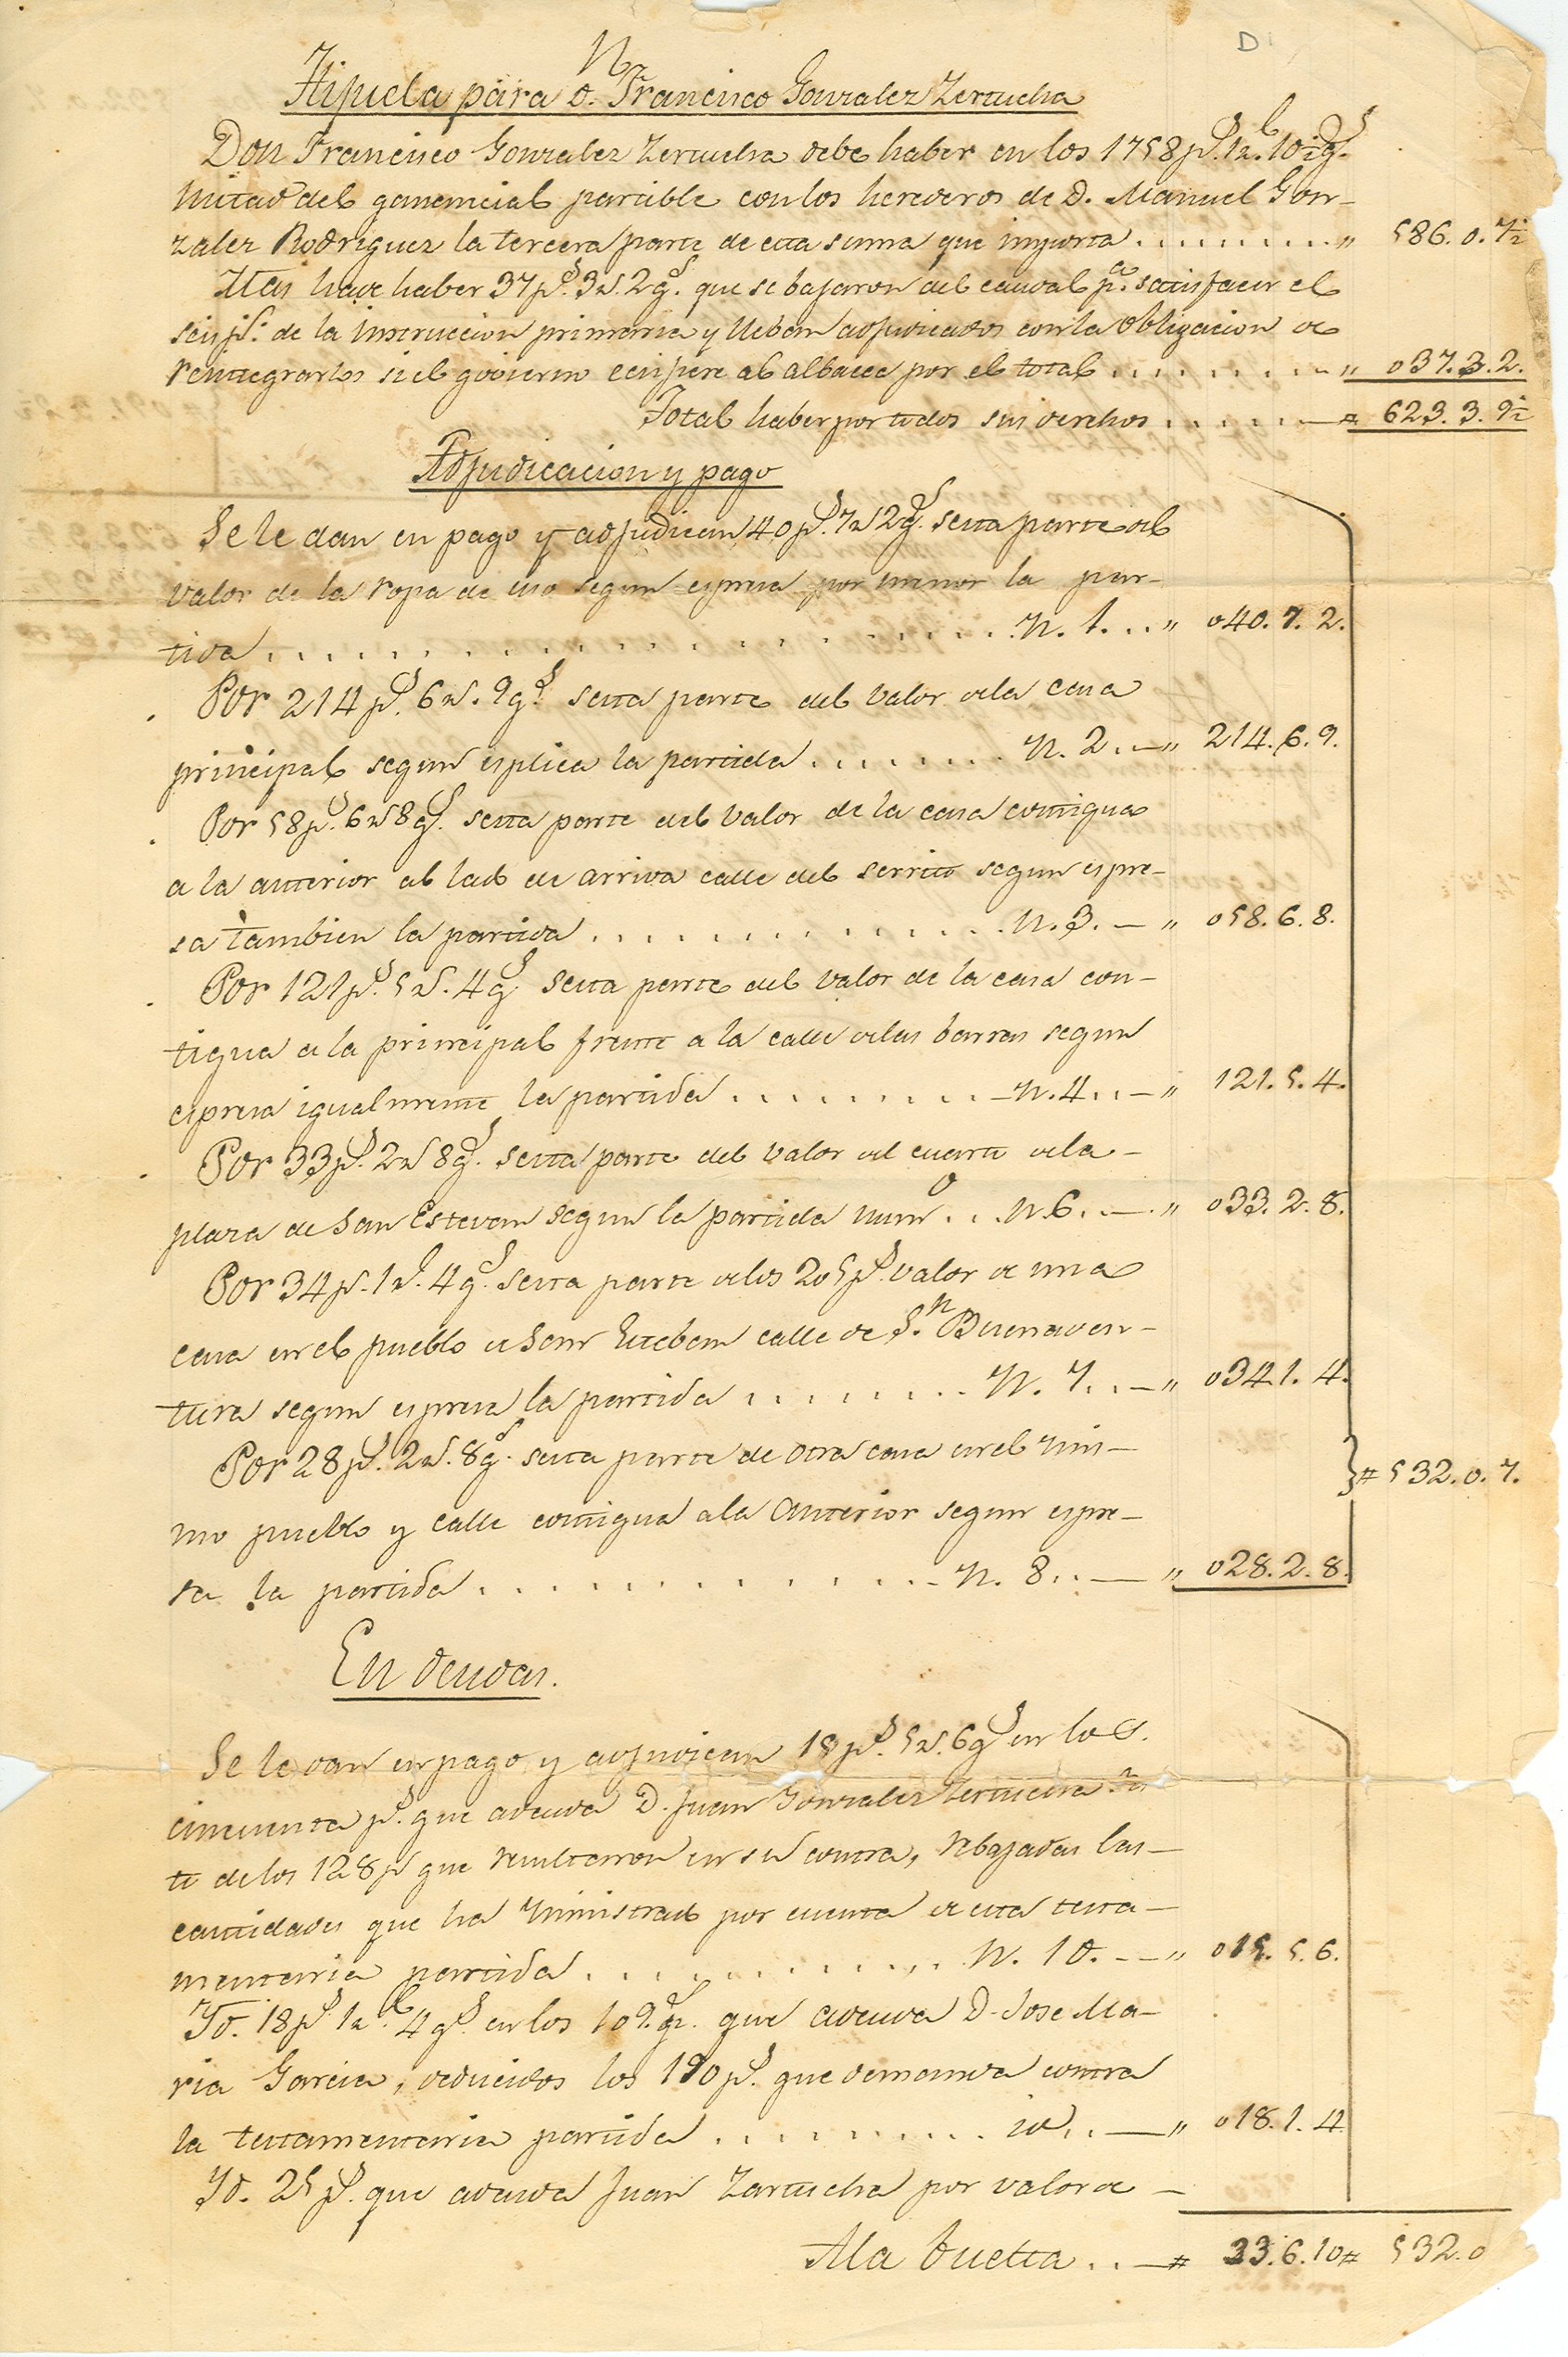 D
Hijuela para D. Francisco Gonzalez Zertucha
Don Francisco Gonzalez Zertucha debe haber en los 1758 ps. 1 rl. 10½ gs.
mitad del ganencial partible con los herederos de D. Manuel Gon-
zalez Rodriguez la tercera parte de esta suma que importa . . . . . . . . . " 586. 0. 7½
Mas have haber 37 ps. 3 rs. 2 gs. que se bajaron del caudal pa. satisfacer el
seis ps. de la instruccion primaria y lleban adjudicados con la obligacion de
reintegrarlos si el govierno al albacea por el total . . . . . . . . " 037. 3. 2.
Total haber por todos sus derechos . . . . . . # 623. 3. 9½
Adjudicacion y pago
Se le dan en pago y adjudican 40 ps. 7 rs 2 gs. sesta parte del
valor de la ropa de uso segun espresa por menor la par-
tida . . . . . . . . . . . . . . . . . N. 1. . . " 040. 7. 2.
Por 214 ps. 6 rs. 9 gs. sesta parte del valor dela casa
principal segun esplica la partida . . . . . . . . N. 2. — " 214. 6. 9.
Por 58 ps. 6 rs 8 gs. sesta parte del valor de la casa contigua
a la anterior al lado de arriva calle del serrito segun espre-
sa tambien la partida . . . . . . . . . . . . . . N. 3. — " 058. 6. 8.
Por 121 ps. 5 rs. 4 gs. sesta parte del valor de la casa con-
tigua a la principal frente a la calle delas barras segun
espresa igualmente la partida . . . . . . . . . — N. 4. . — " 121. 5. 4.
Por 33 ps. 2 rs 8 gs. sesta parte del valor del cuarto dela -
plaza de San Estevan segun la partida numo . . . N. 6. . — " 033. 2. 8.
Por 34 ps. 1 rl. 4 gs. sesta parte delos 205 ps. valor de una
casa en el pueblo de San Esteban calle de Sn. Buenaven-
tura segun espresa la partida . . . . . . . . . N. 7. . — " 034. 1. 4.
Por 28 ps. 2 rs. 8 gs. sesta parte de otra casa en el mis-
mo pueblo y calle contigua ala anterior segun espre-
sa la partida . . . . . . . . . . . . . . . - N. 8. . — " 028. 2. 8.
} # 532. 0. 7.
En deudas.
Se le dan en pago y adjudican 15 ps. 5 rs. 6 gs en los
cincuenta ps. que adeuda D. Juan Gonzalez Zertucha
te delos 128 ps que resultaron en su contra, rebajadas las -
cantidades que ha ministrado por cuenta de esta testa-
mentaria partida . . . . . . . . . . . . . N. 10. - — " 015. 5. 6.
Yd. 18 ps. 1 rl. 4 gs. en los 109 ps. que adeuda D. Jose Ma-
ria Garcia, deducidos los 190 ps. que demanda contra
la testamentaria partida . . . . . . . . . . id. . — " 018. 1. 4
Yd. 25 ps. que adeuda Juan Zartucha por valor de -
Ala buelta . . — # 33. 6. 10 # 532. 0